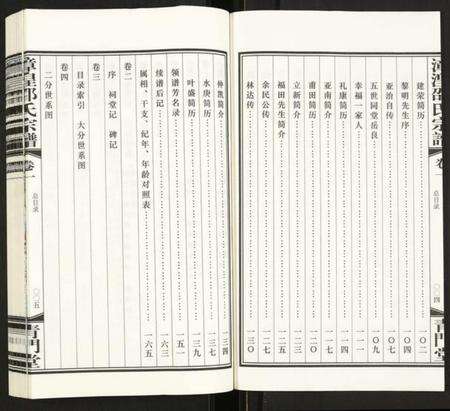 漳潭邵氏宗譜
卷一
总目录
〇〇四
青門堂
建荣简历 一〇二
黎明先生序 一〇四
亚治自传 一〇七
五世同堂岳良 一〇九
幸福一家人 一一二
孔康简历 一一四
亚南简历 一一六
甫田简历 一二〇
立新简介 一二三
福田先生简介 一二五
余民公传 一二八
林达传 一三〇
仲凯简介 一三四
水庚简历 一三七
叶盛简历 一三九
领谱芳名录 一五一
续谱后记 一六三
属相、干支、纪年、年龄对照表 一六五
卷二
序 祠堂记 碑记
卷三
目录索引 大分世系图
卷四
二分世系图
漳潭邵氏宗譜
卷一
总目录
〇〇五
青門堂